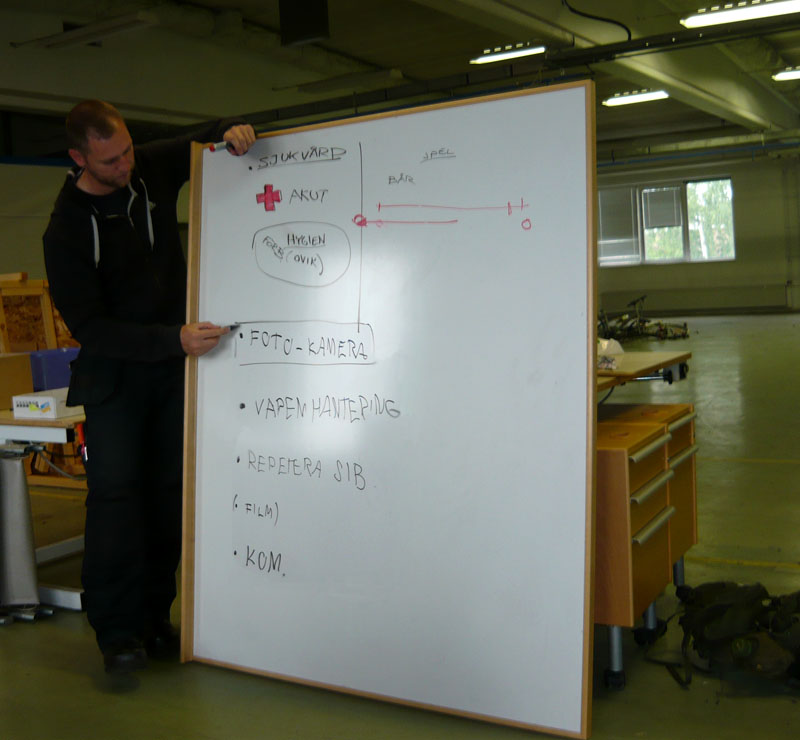 • SJUKVÅRD
AKUT
HYGIEN
(OVIK)
SPEL
BÅR
• FOTO-KAMERA
• VAPENHANTERING
• REPETERA SIB.
(• FILM)
• KOM.